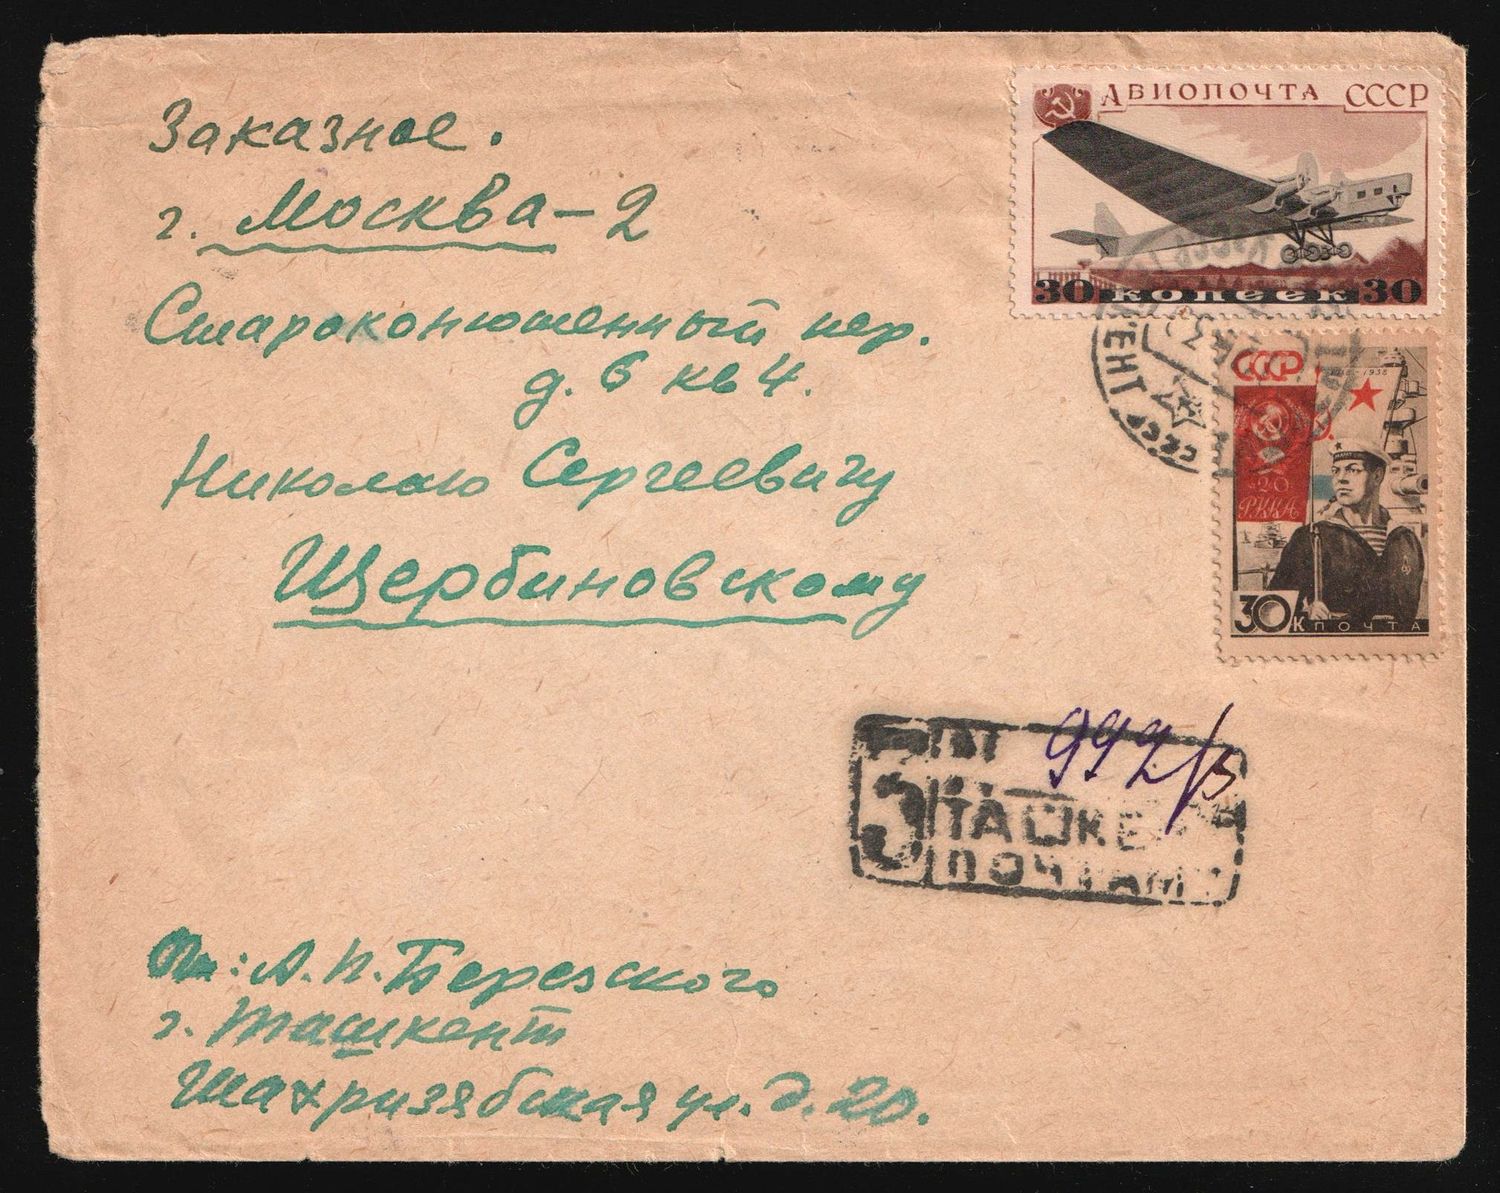 Заказное.
г. Москва-2
Староконюшенный пер.
д. 6 кв 4.
Николаю Сергеевичу
Щербиновскому
АВИОПОЧТА СССР
30 КОПЕЕК 30
СССР
1918-1938
20
РККА
30 К ПОЧТА
КЕНТ
999/5
З
ТАШКЕ
ПОЧТАМ
От: А.П. Березского
г. Ташкент
Шахризябская ул. д. 20.